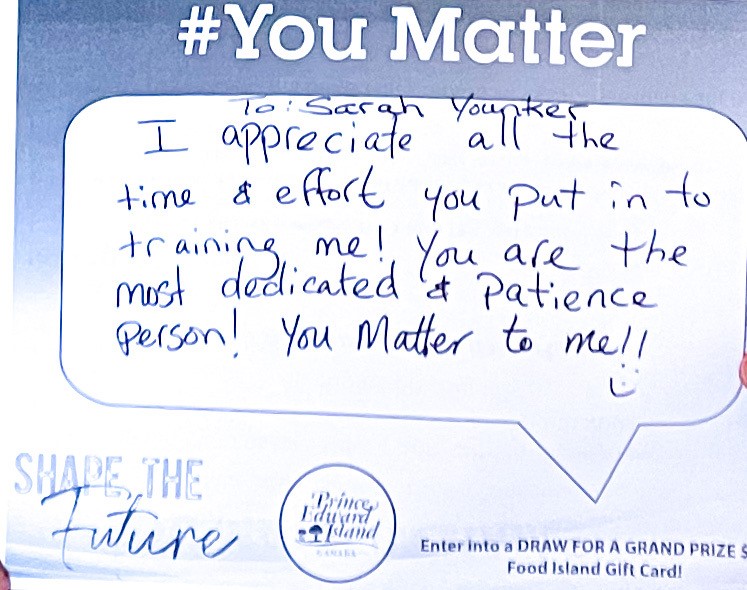 #You Matter
To: Sarah Younker
I appreciate all the
time & effort you put in to
training me! You are the
most dedicated & Patience
person! You Matter to me!!
SHAPE THE
Future
Prince
Edward
Island
CANADA
Enter into a DRAW FOR A GRAND PRIZE $
Food Island Gift Card!